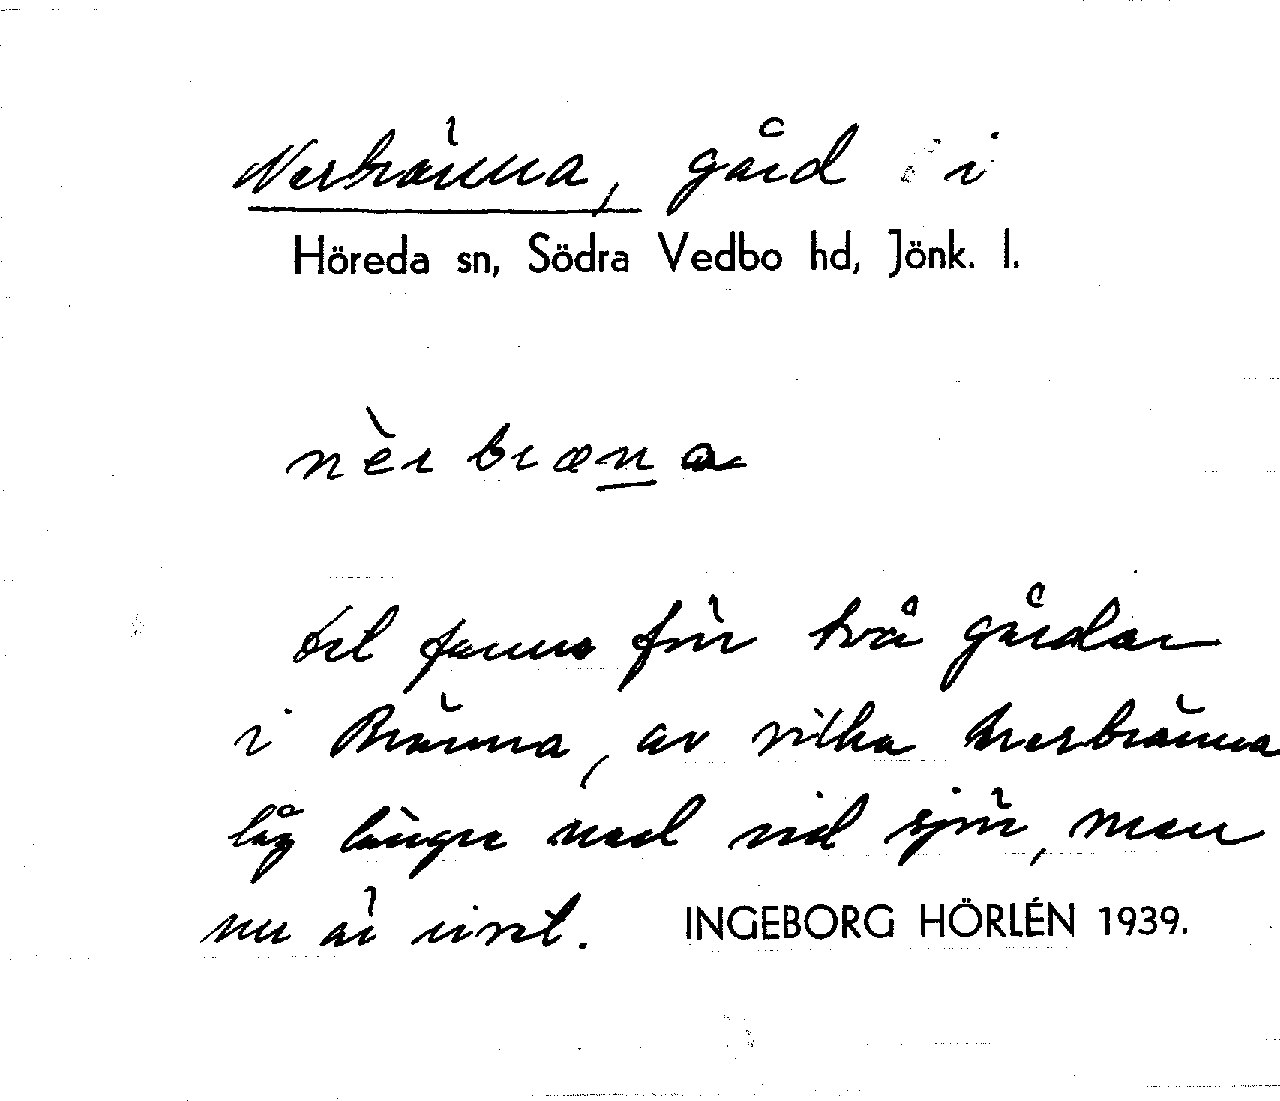 Nerbränna, gård i
Höreda sn, Södra Vedbo hd, Jönk. l.
nèr bræna
det fanns förr två gårdar
i Bränna, av vilka Nerbränna
låg längre ned vid sjön, men
nu är rivet. INGEBORG HÖRLÉN 1939.